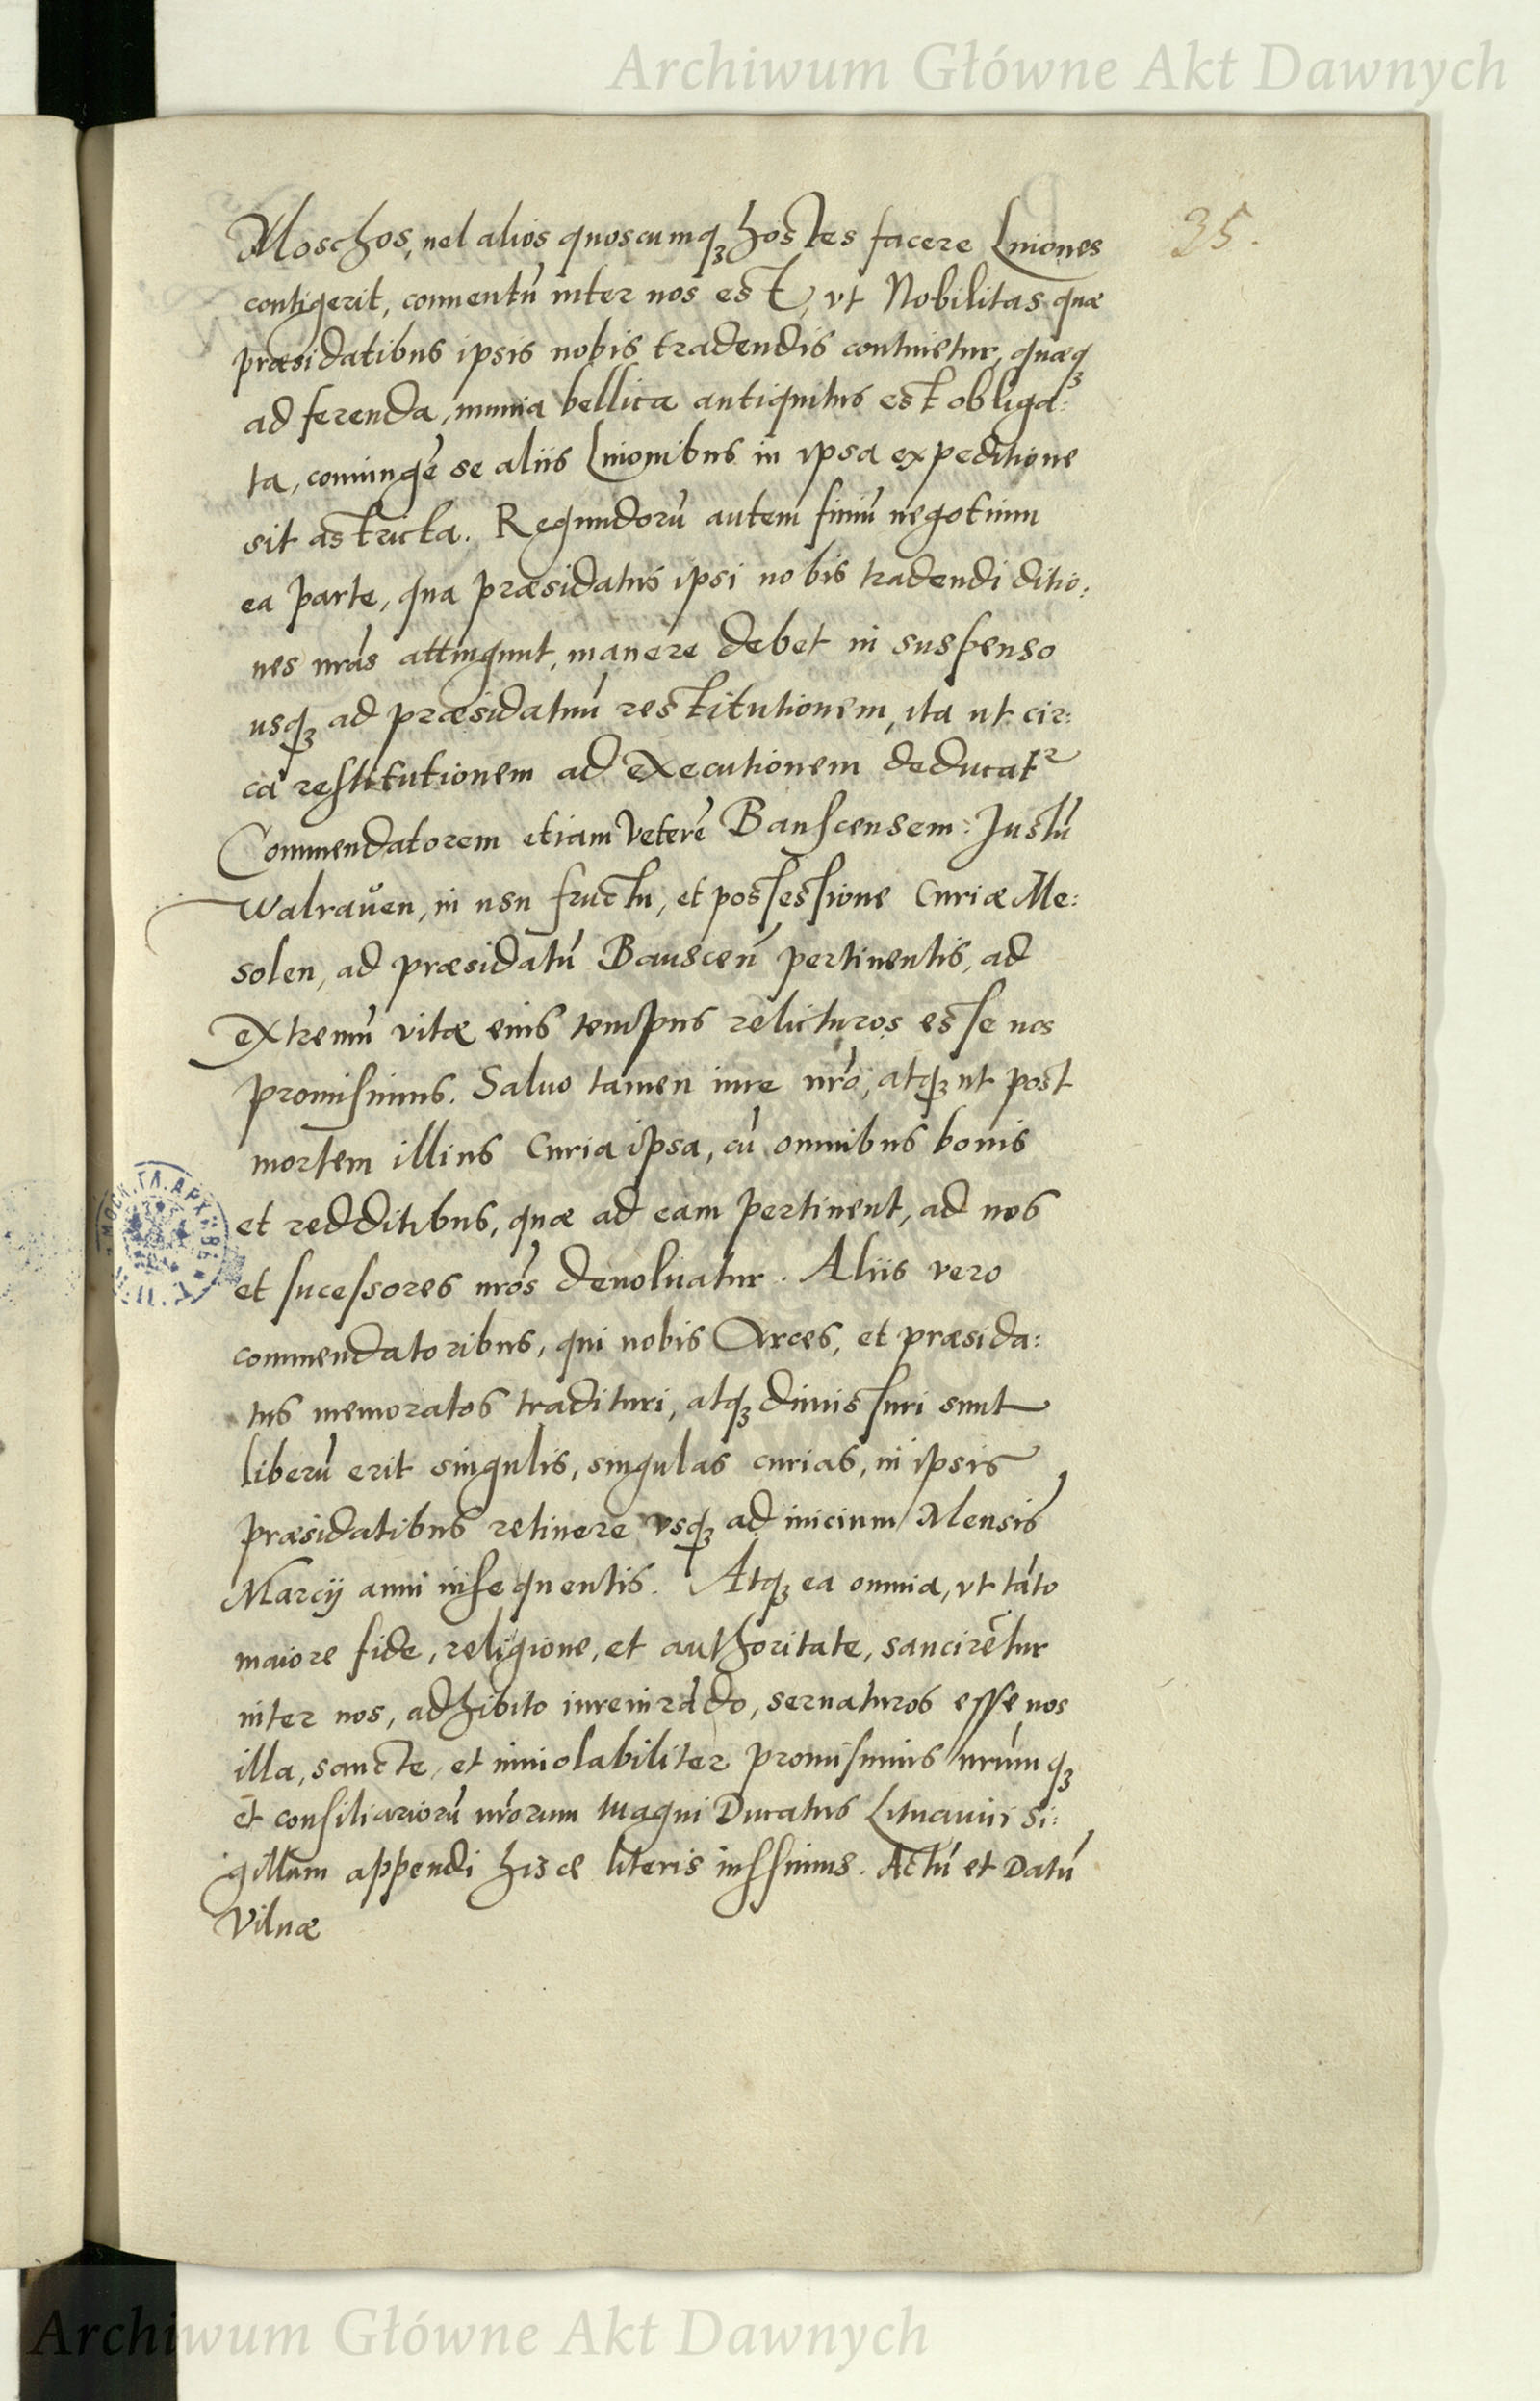 Archiwum Główne Akt Dawnych
35.
Moschos, uel alios quoscumqꝫ hostes facere Liuones
contigerit, conuentū inter nos est, vt Nobilitas quæ
præsidatibus ipsis nobis tradendis continetur, quæqꝫ
ad ferenda, munia bellica antiquitus est obliga:
ta, coniungē se aliis Liuonibus in ipsa expeditione
sit astricta. Regundorū autem finiū negotium
ea parte, qua præsidatus ipsi nobis tradendi ditio:
nes nrās attingunt, manere debet in suspenso
usqꝫ ad præsidatuū restitutionem, ita ut cir:
ca restitutionem ad executionem deducatr
Commendatorem etiam veterē Bauscensem: Justū
Walrauen, in usu fructu, et possessione Curiæ Me:
solen, ad præsidatū Bauscen̄ pertinentis, ad
extremū vitæ eius tempus relicturos esse nos
promisimus. Saluo tamen iure nrō, atqꝫ ut post
mortem illius Curia ipsa, cū omnibus bonis
et redditibus, quæ ad eam pertinent, ad nos
et sucessores nrōs deuoluatur. Aliis vero
commendatoribus, qui nobis Arces, et præsida:
tus memoratos tradituri, atqꝫ dimissuri sunt
liberū erit singulis, singulas curias, in ipsis
præsidatibus retinere vsqꝫ ad inicium Mensis
Marcij anni insequentis. Atqꝫ ea omnia, vt tāto
maiore fide, religione, et authoritate, sancirētur
inter nos, adhibito iureiurādo, seruaturos esse nos
illa, sancte, et inuiolabiliter promisimus nrūmqꝫ
et consiliariorū nrōrum Magni Ducatus Lituaniæ si:
gillum appendi hisce literis iussimus. Actū et Datū
Vilnæ
МОСК.ГЛ.АРХИВЪ
Archiwum Główne Akt Dawnych